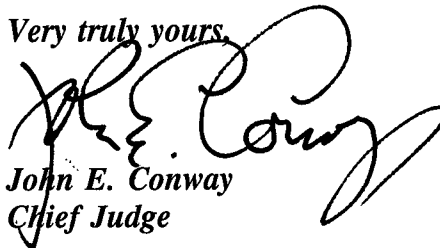 Very truly yours,
John E. Conway
John E. Conway
Chief Judge